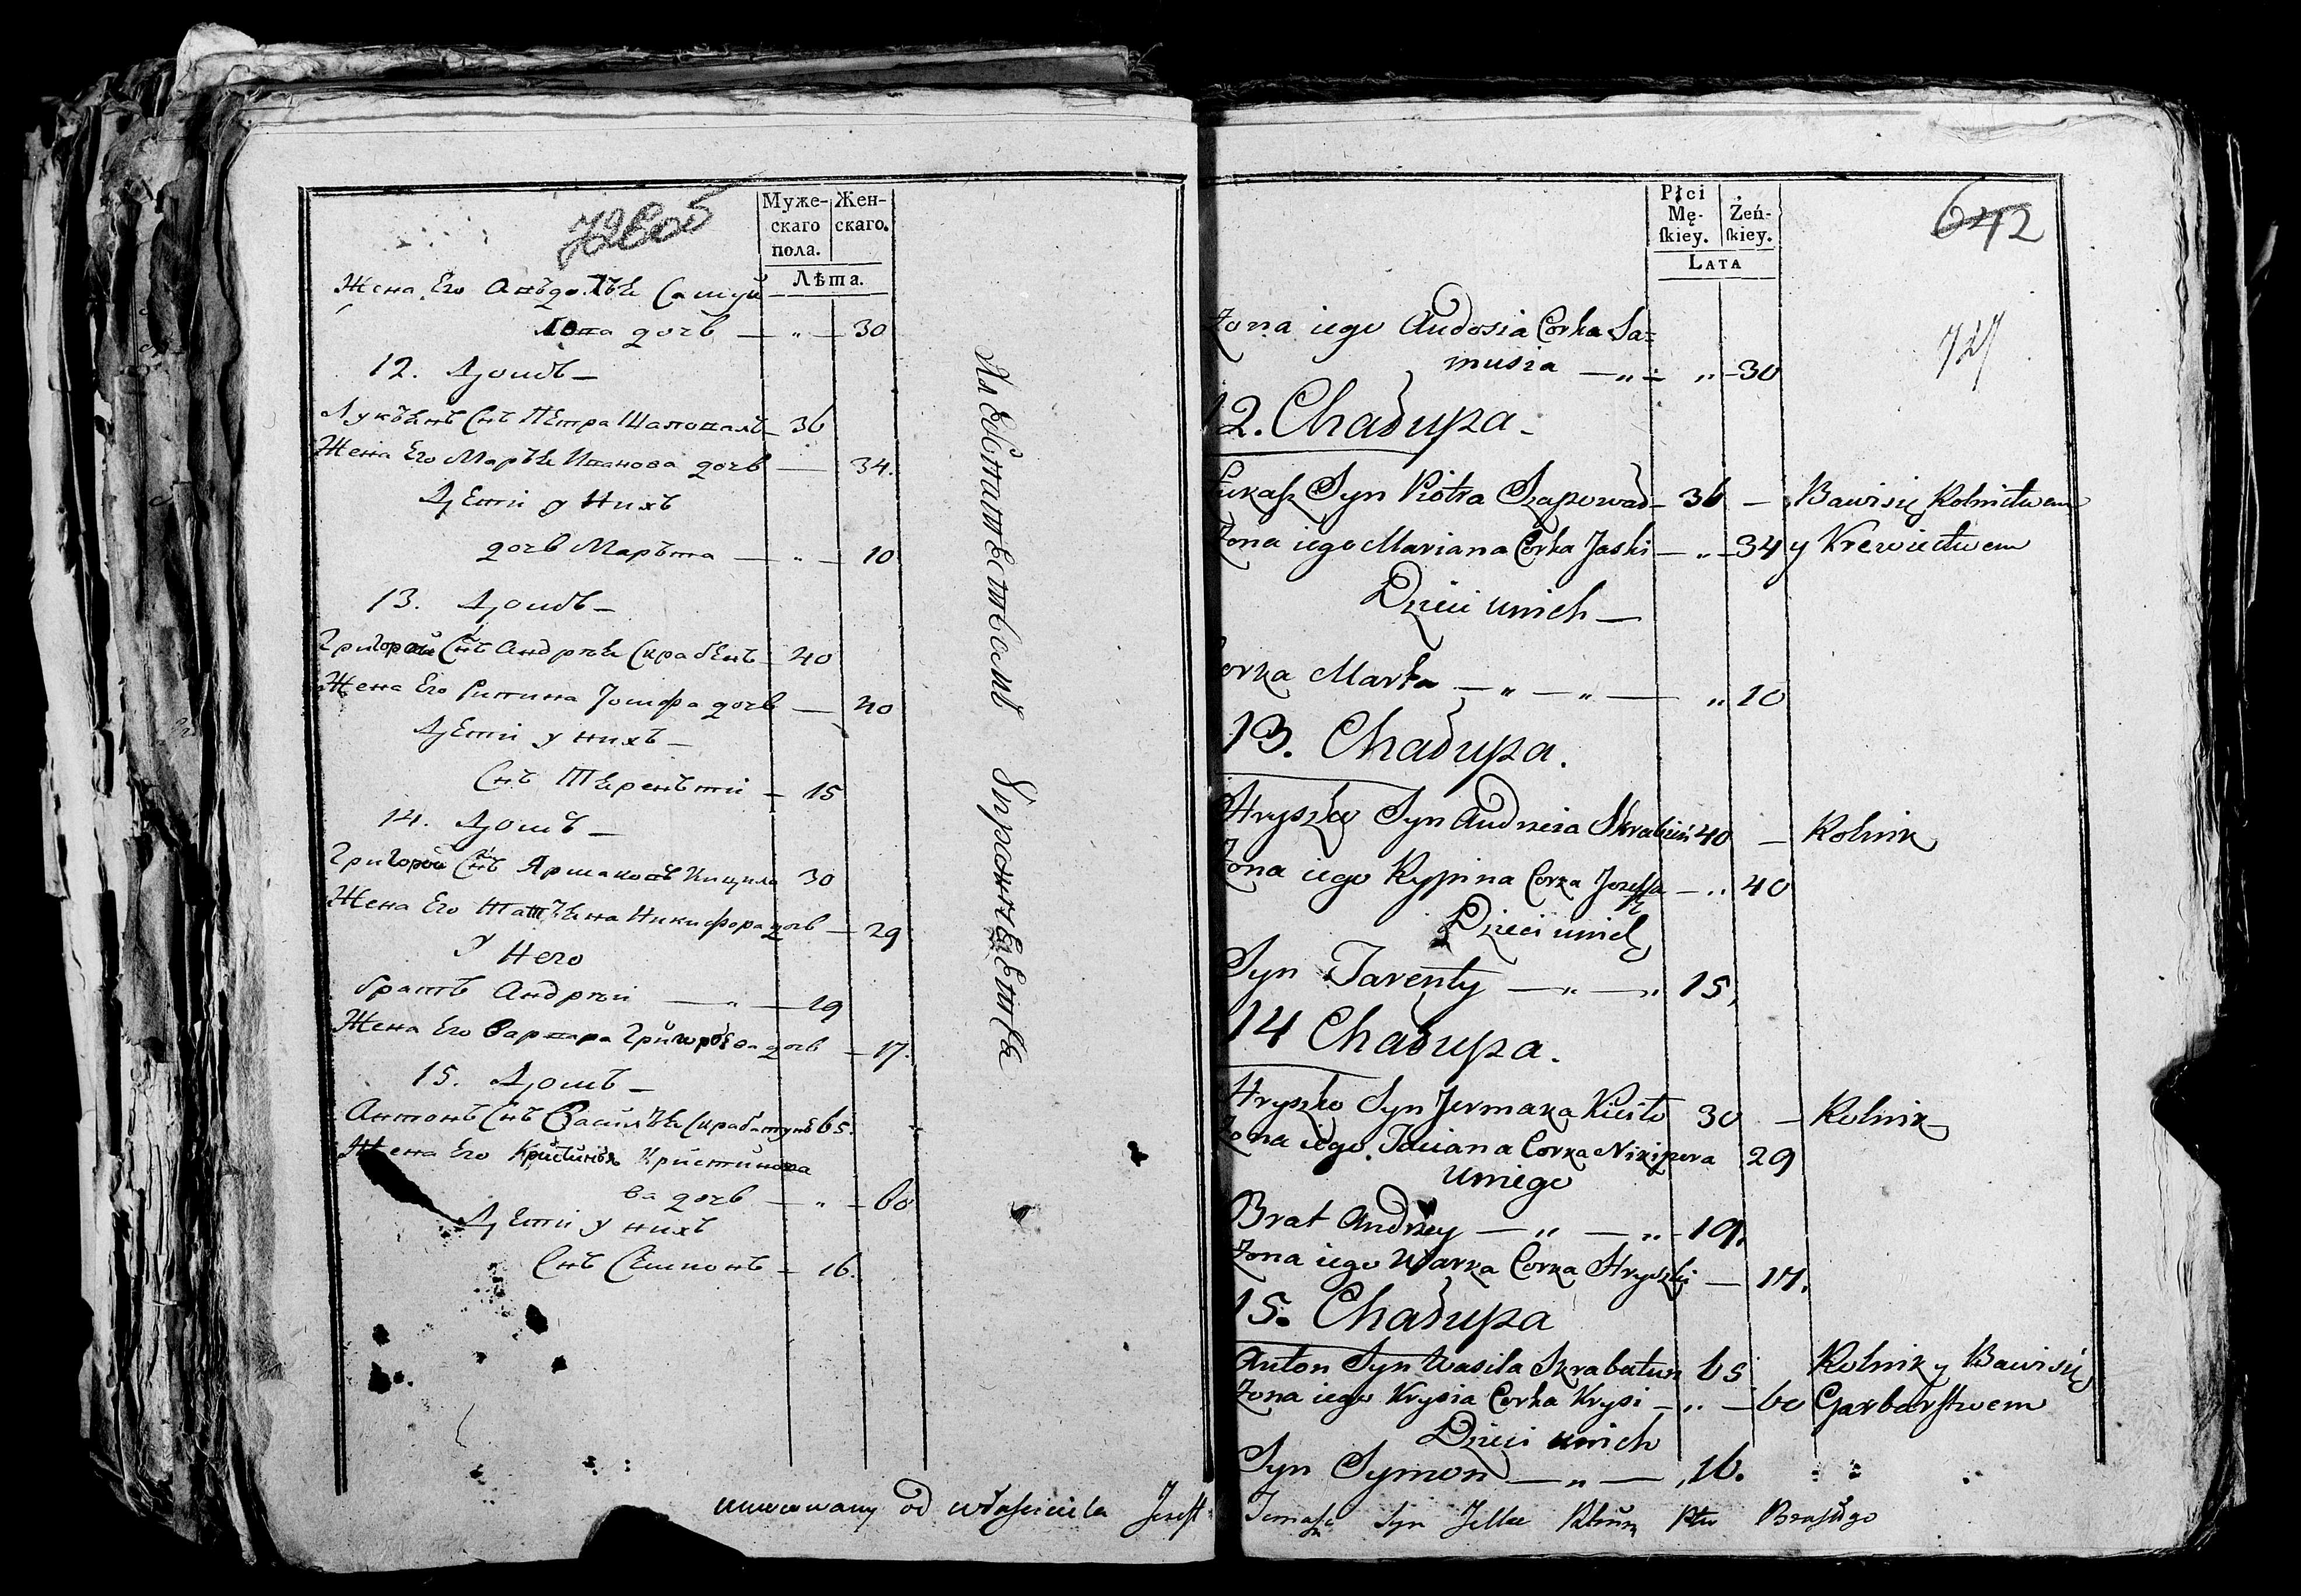 Муже-
скаго
пола.
Жен-
скаго.
Лѣта.
Жена Его Авъдотьѣ Самуй
лова дочь — „ — 30
12. Домъ —
Лукъянъ Снъ Пѣтра Шаповалъ — 36
Жена Его Марья Иванова дочь — 34.
Дѣти у Нихъ
дочь Маръта — „ — 10
13. Домъ —
Григорой Снъ Андрѣя — 40
Жена Его Іошфа дочь — 40
Дѣти у нихъ —
Снъ Тѣренътий — 15
14. Домъ —
Григорой Снъ 30
Жена Его Татьяна Никифора дочь — 29
У Него
братъ Андрѣй — „ — 19
Жена Его Варвара Григорьева дочь — 17.
15. Домъ —
Антонъ Снъ Васильѣ Скрабатунъ 65.
Жена Его
ва дочь — „ — 60
Дѣти у нихъ
Снъ Сѣмионъ — 16.
umowany od właściciela Jzest
Płci
Mę-
ſkiey.
Żeń-
ſkiey.
Lata
642
727
Żona iego Audosia Corka Sa=
musia — „ — „ — 30
12. Chałupa —
Łukasz Syn Piotra Szapował — 36 — Bawi się Rolnictwem
Żona iego Mariana Corka Jaski — „ — 34 y Krewiectwem
Dzieci u nich —
Corka Marta — „ — „ — „ 10
13. Chałupa.
Hryszko Syn Andrzeia Skrabień 40 — Rolnik
Żona iego Rypina Corka Jozefa — „ 40
Dzieci u nich
Syn Tarenty — „ — „ 15,
14 Chałupa.
Hryszko Syn Jermaka Kiciło 30 — Rolnik
Żona iego Taciana Corka Nikipora 29
U niego
Brat Andrzey — „ — „ — 19.
Żona iego Warka Corka Hryszki — 17.
15. Chałupa
Anton Syn Wasila Skrabatun 65 Rolnik y Bawi się
Żona iego Krysia Corka Krysi — „ — 60 Garbarstwem
Dzieci u nich
Syn Symon — „ — „ 16.
Tomasz Syn